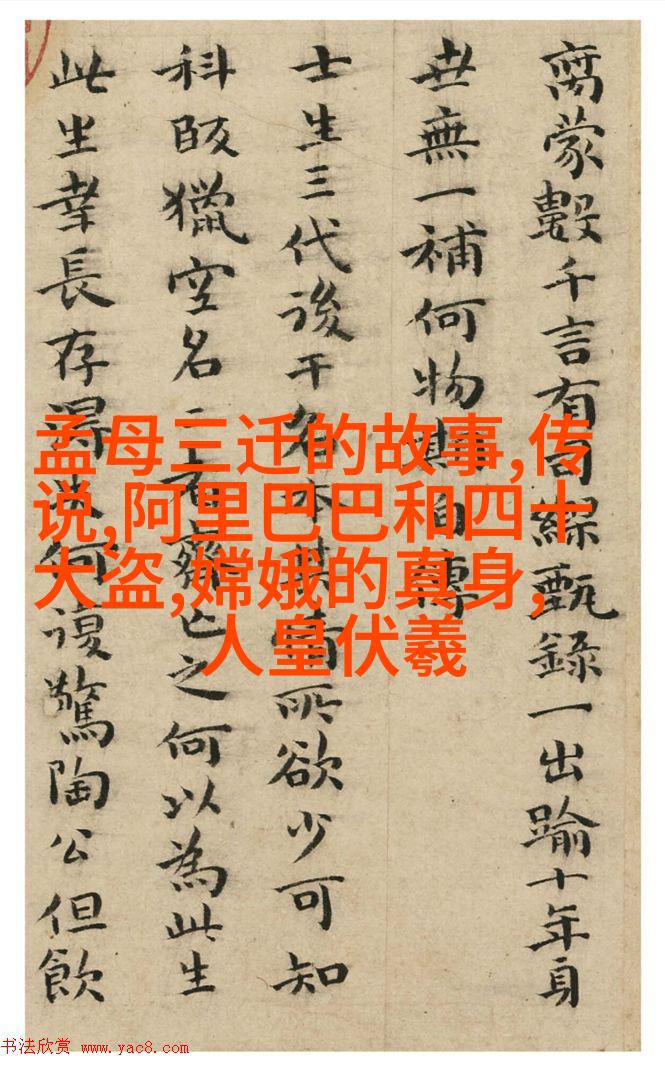 孟母三迁的故事,传
说,阿里巴巴和四十
大盗,嫦娥的真身,
人皇伏羲
蒙數千言有司繆甄錄一出踰十年身
世無一補何物自傳
士生三代後干名本其情所欲少可知
科獵空名二者齊亡之何以為此生
此生幸長存得失何復驚陶公但飲
书法欣赏 www.yac8.com